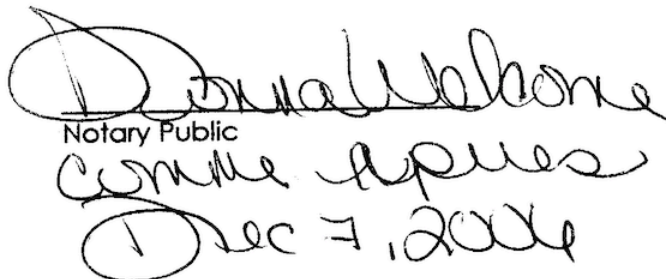 Donna Welcome
Notary Public
comm expires
Dec 7, 2006